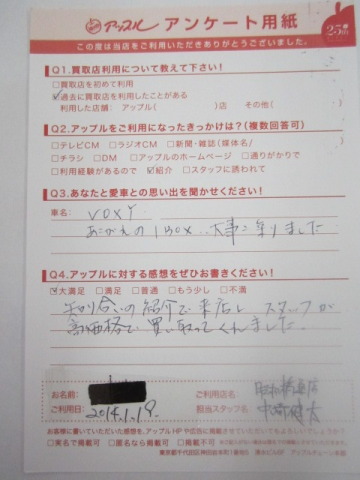 買取 アップル アンケート用紙
この度は当店をご利用いただきありがとうございました。
Q1.買取店利用について教えて下さい!
□買取店を初めて利用
☑過去に買取店を利用したことがある
利用した店舗: アップル( )店 その他( )
Q2.アップルをご利用になったきっかけは?(複数回答可)
□テレビCM □ラジオCM □新聞・雑誌(媒体名/ )
□チラシ □DM □アップルのホームページ □通りがかりで
□利用経験があるので ☑紹介 □スタッフに誘われて
Q3.あなたと愛車との思い出を聞かせください!
車名: VOXY
あこがれの1BOX...大事に乗りました
Q4.アップルに対する感想をぜひお書きください!
☑大満足 □満足 □普通 □もう少し □不満
知り合いの紹介で来店し スタッフが
高価格で買い取ってくれました。
お名前:
ご利用日: 2014.1.19.
ご利用店名 昭和橋通店
担当スタッフ名
お客様に書いていただいた感想を、アップルHPや広告に掲載させていただいてもよろしいでしょうか?
□実名で掲載可 □匿名なら掲載可 □掲載不可